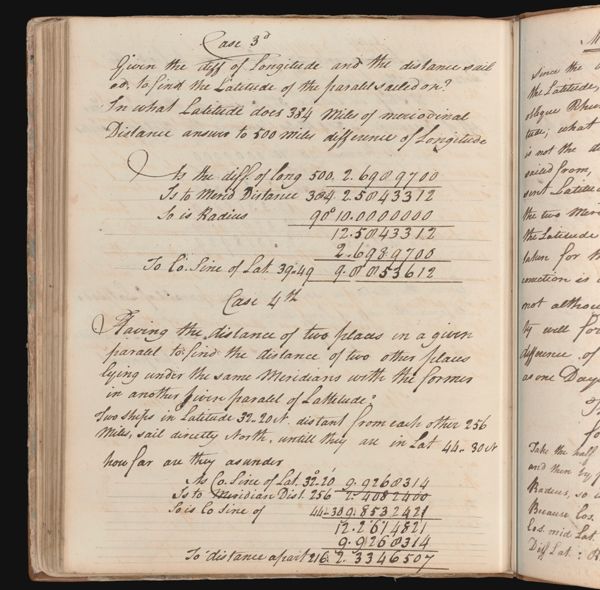 Case 3d
Given the diff of Longitude and the distance sail
ed, to find the Latitude of the paralel sailed on?
In what Latitude does 384 Miles of meriodinal
Distance answer to 500 miles difference of Longitude
As the diff. of long 500. 2.6989700
Is to Merid Distance 384. 2.5843312
So is Radius 90° 10.0000000
12.5843312
2.6989700
To Co. Sine of Lat. 39.49 9.8853612
Case 4th
Having the distance of two places in a given
paralel to find the distance of two other places
lying under the same Meridians with the former
in another given paralel of Lattitude?
Two ships in Latitude 32..20 N. distant from each other 256
Miles, sail directly North, untill they are in Lat 44..30 N
how far are they asunder
As Co. Sine of Lat. 32°.20' 9.9268314
Is to Meridian Dist. 256 2.4082400
So is Co Sine of 44..30 9.8532421
12.2614821
9.9268314
To distance apart 216. 2.3346507
since the
the Latitude,
oblique Rhum
tude; what
is not the d
sailed from,
the two Meri
the Latitude
taken for th
not althou
by will for
difference of
as one Day
fo
Take the half
and then by
Radius, so
Because Cos.
Cos. mid Lat.
Diff Lat. : R